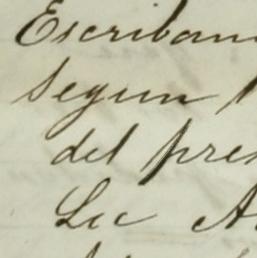 Escriban
Segun
del pres
Lic A